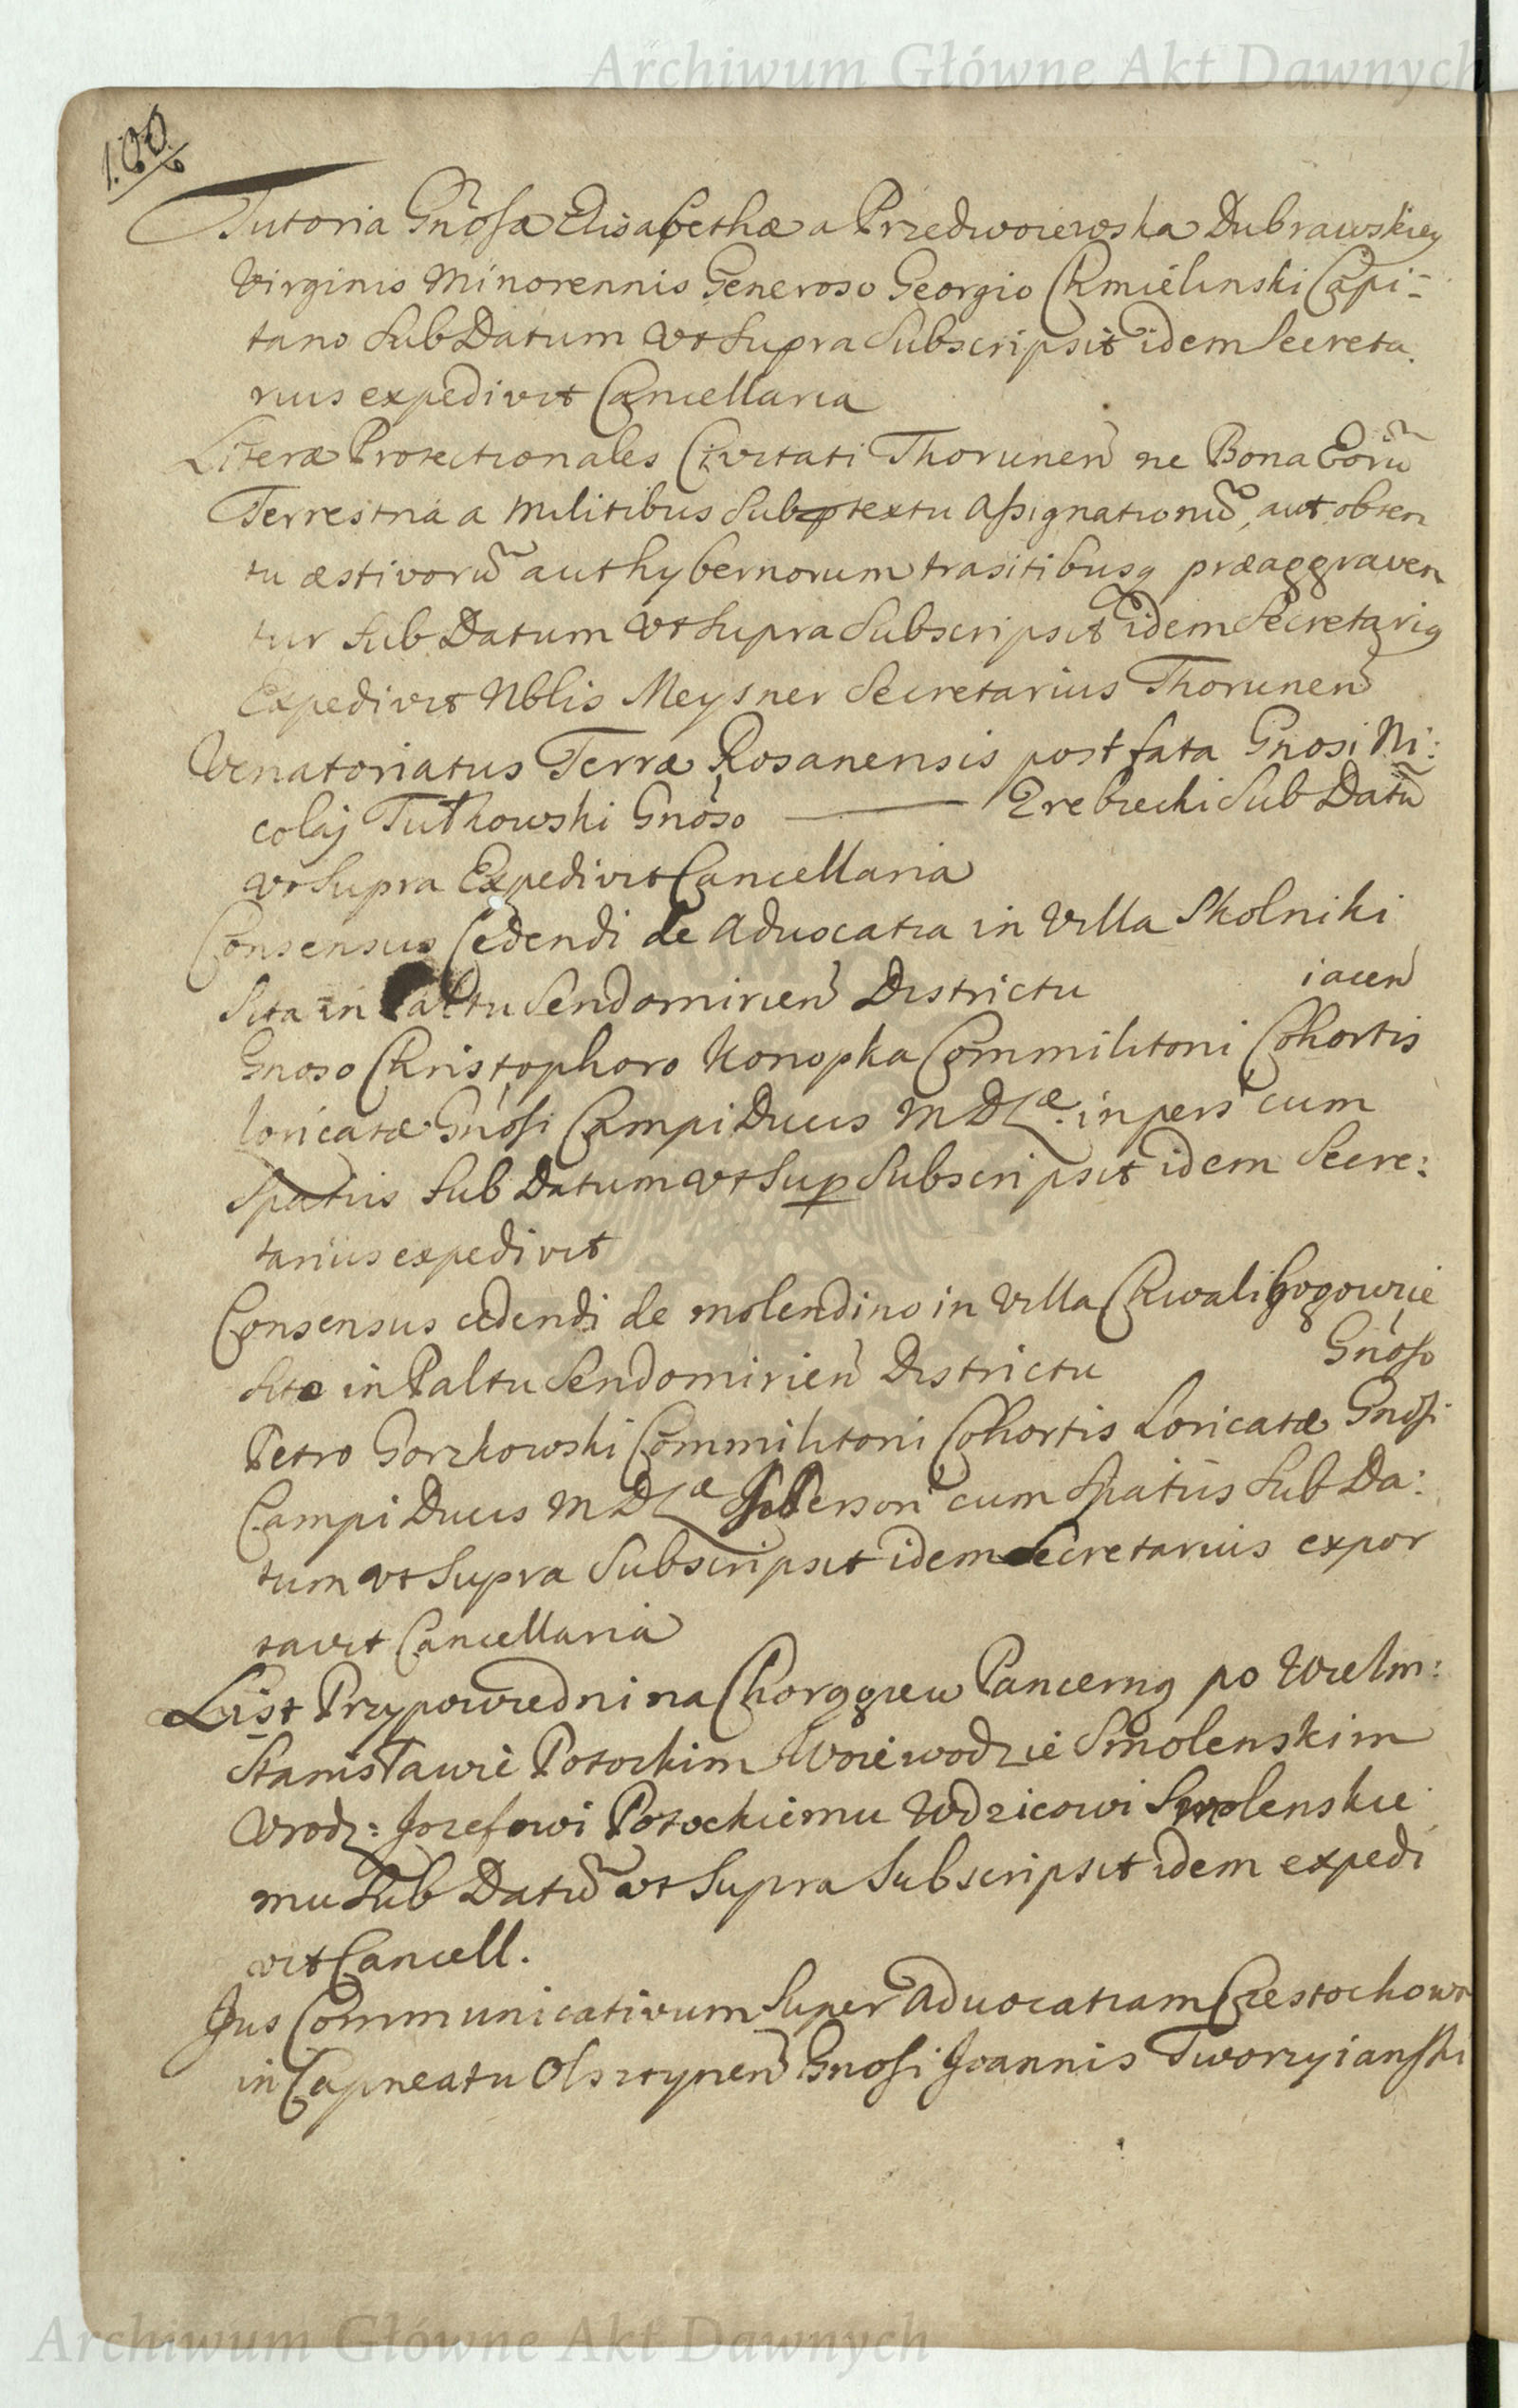 Archiwum Główne Akt Dawnych
100
Tutoria Gnosæ Elisabethæ a Przedwoiewska Dubrawskiey
Virginis Minorennis Generoso Georgio Chmielinski Capi-
tano Sub Datum vt Supra Subscripsit idem Secreta
rius expedivit Cancellaria
Literæ Protectionales Civitati Thorunen ne Bona Eorũ
Terrestria a Militibus Sub ptextu Assignationũ, aut obten
tu æstivorũ aut hybernorum trasitibusq præaggraven
tur Sub Datum vt Supra Subscripsit idem Secretariq
Expedivit Nblis Meysner Secretarius Thorunen
Venatoriatus Terræ Rosanensis post fata Gnosi Ni:
colaj Tutkowski Gnoso ——— Zrebrecki Sub Datũ
vt Supra Expedivit Cancellaria
Consensus Cedendi de Aduocatia in Villa Skolniki
Sita in Paltu Sendomirien Districtu iacen
Gnoso Christophoro Konopka Commilitoni Cohortis
loricatæ Gnosi Campi Ducis M D Læ. in pers cum
Spatiis Sub Datum vt Sup Subscripsit idem Secre:
tarius expedivit
Consensus cedendi de molendino in Villa Chwaligogowie
Sito in Paltu Sendomirien Districtu Gnoso
Petro Gorzkowski Commilitoni Cohortis Loricatæ Gnosi
Campi Ducis M D Læ Person cum Spatiis Sub Da:
tum vt Supra Subscripsit idem Secretarius expor
tavit Cancellaria
List Przypowiedni na Chorągiew Pancerną po Wielm:
Stanisławie Potockim Woiewodzie Smolenskim
Vrodz: Jozefowi Potockiemu Wdzicowi Smolenskie
mu Sub Datũ vt Supra Subscripsit idem expedi
vit Cancell.
Jus Communicativum Super Aduocatiam Czestochowa
in Capneatu Olsztynen Gnosi Joannis Tworzyianski
Archiwum Główne Akt Dawnych